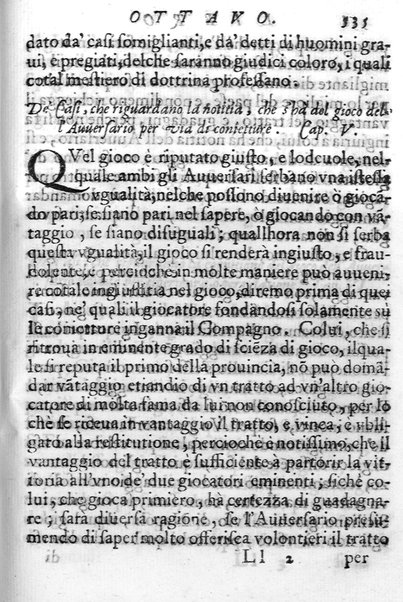 OTTAVO. 535
dato da' casi somiglianti, e da' detti di huomini gra-
ui, e pregiati, delche saranno giudici coloro, i quali
cotal mestiero di dottrina professano.
De' casi, che riguardano la notitia, che s'hà del gioco del-
l'Auuersario per via di conietture. Cap. V.
QVel gioco è riputato giusto, e lodeuole, nel-
quale ambi gli Auuersari serbano vna istessa
vgualità, nelche possono diuenire ò gioca-
do pari, se siano pari nel sapere, ò giocando con va-
taggio, se siano disuguali; quallhora non si serba
questa vgualità, il gioco si renderà ingiusto, e frau-
dolente, e perciòche in molte maniere può auueni-
re cotale ingiustitia nel gioco, diremo prima di quei
casi, ne' quali il giocatore fondandosi solamente su
le conietture inganna il Compagno. Colui, che si
ritroua in eminente grado di scieza di gioco, ilqua-
le si reputa il primo della prouincia, nō può domā-
dar vātaggio etiandio di vn tratto ad vn'altro gio-
catore di molta fama da lui non conosciuto, per lo
che se riceua in vantaggio il tratto, e vinca, è vbli-
gato alla restitutione, percioche è notissimo, che il
vantaggio del tratto è sufficiente à partorir la vit-
toria all'vno de' due giocatori eminenti; siche co-
lui, che gioca primiero, hà certezza di guadagna-
re; sarà diuersa ragione, se l'Auuersario presu-
mendo di saper molto offerisca volontieri il tratto
Ll 2 per